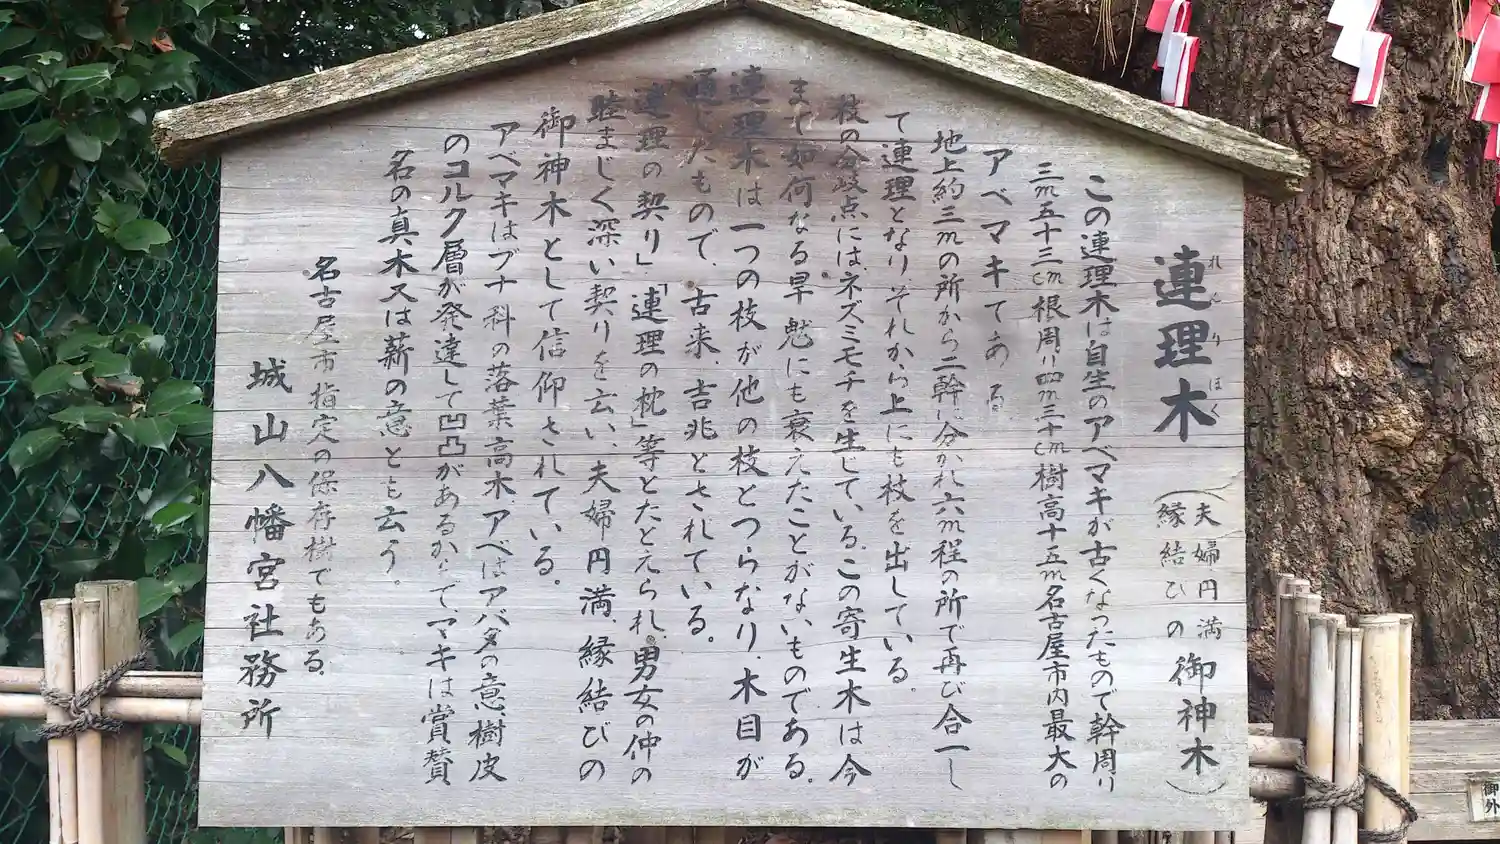 連理木 (夫婦円満 縁結びの 御神木)
れんりぼく
この連理木は自生のアベマキが古くなったもので幹周り
三m五十三cm根周り四m三十cm樹高十五m名古屋市内最大の
アベマキである
地上約三mの所から二幹に分かれ六m程の所で再び合一し
て連理となり、それから上にも枝を出している。
枝の分岐点には、ネズミモチを生している。この寄生木は今
まで如何なる旱魃にも衰えたことがないものである。
連理木は一つの枝が他の枝とつらなり、木目が
通じたもので、古来、吉兆とされている。
「連理の契り」「連理の枕」等とたとえられ、男女の仲の
睦まじく深い契りを云い、夫婦円満、縁結びの
御神木として信仰されている。
アベマキはブナ科の落葉高木アベはアバタの意樹皮
のコルク層が発達して凹凸があるからで、マキは賞賛
名の真木又は薪の意とも云う。
名古屋市指定の保存樹でもある。
城山八幡宮社務所
御外